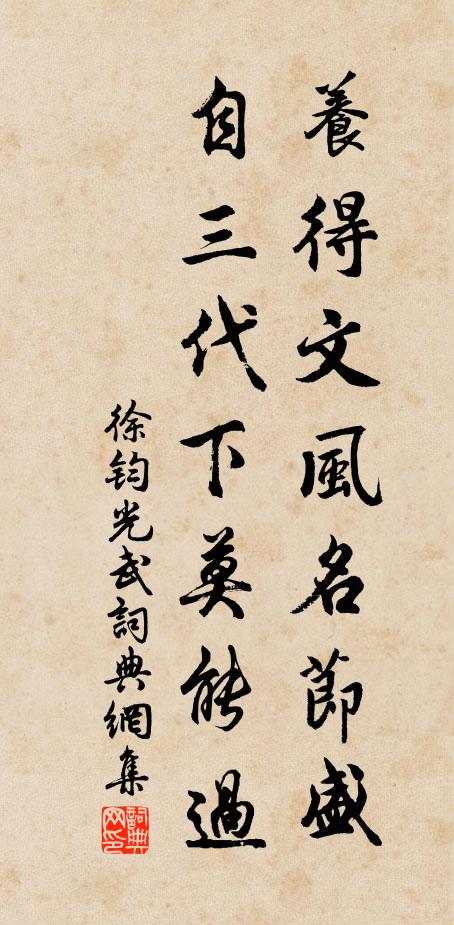 養得文風名節盛
自三代下莫能過
徐鈞光武詞典網集
詞典网印